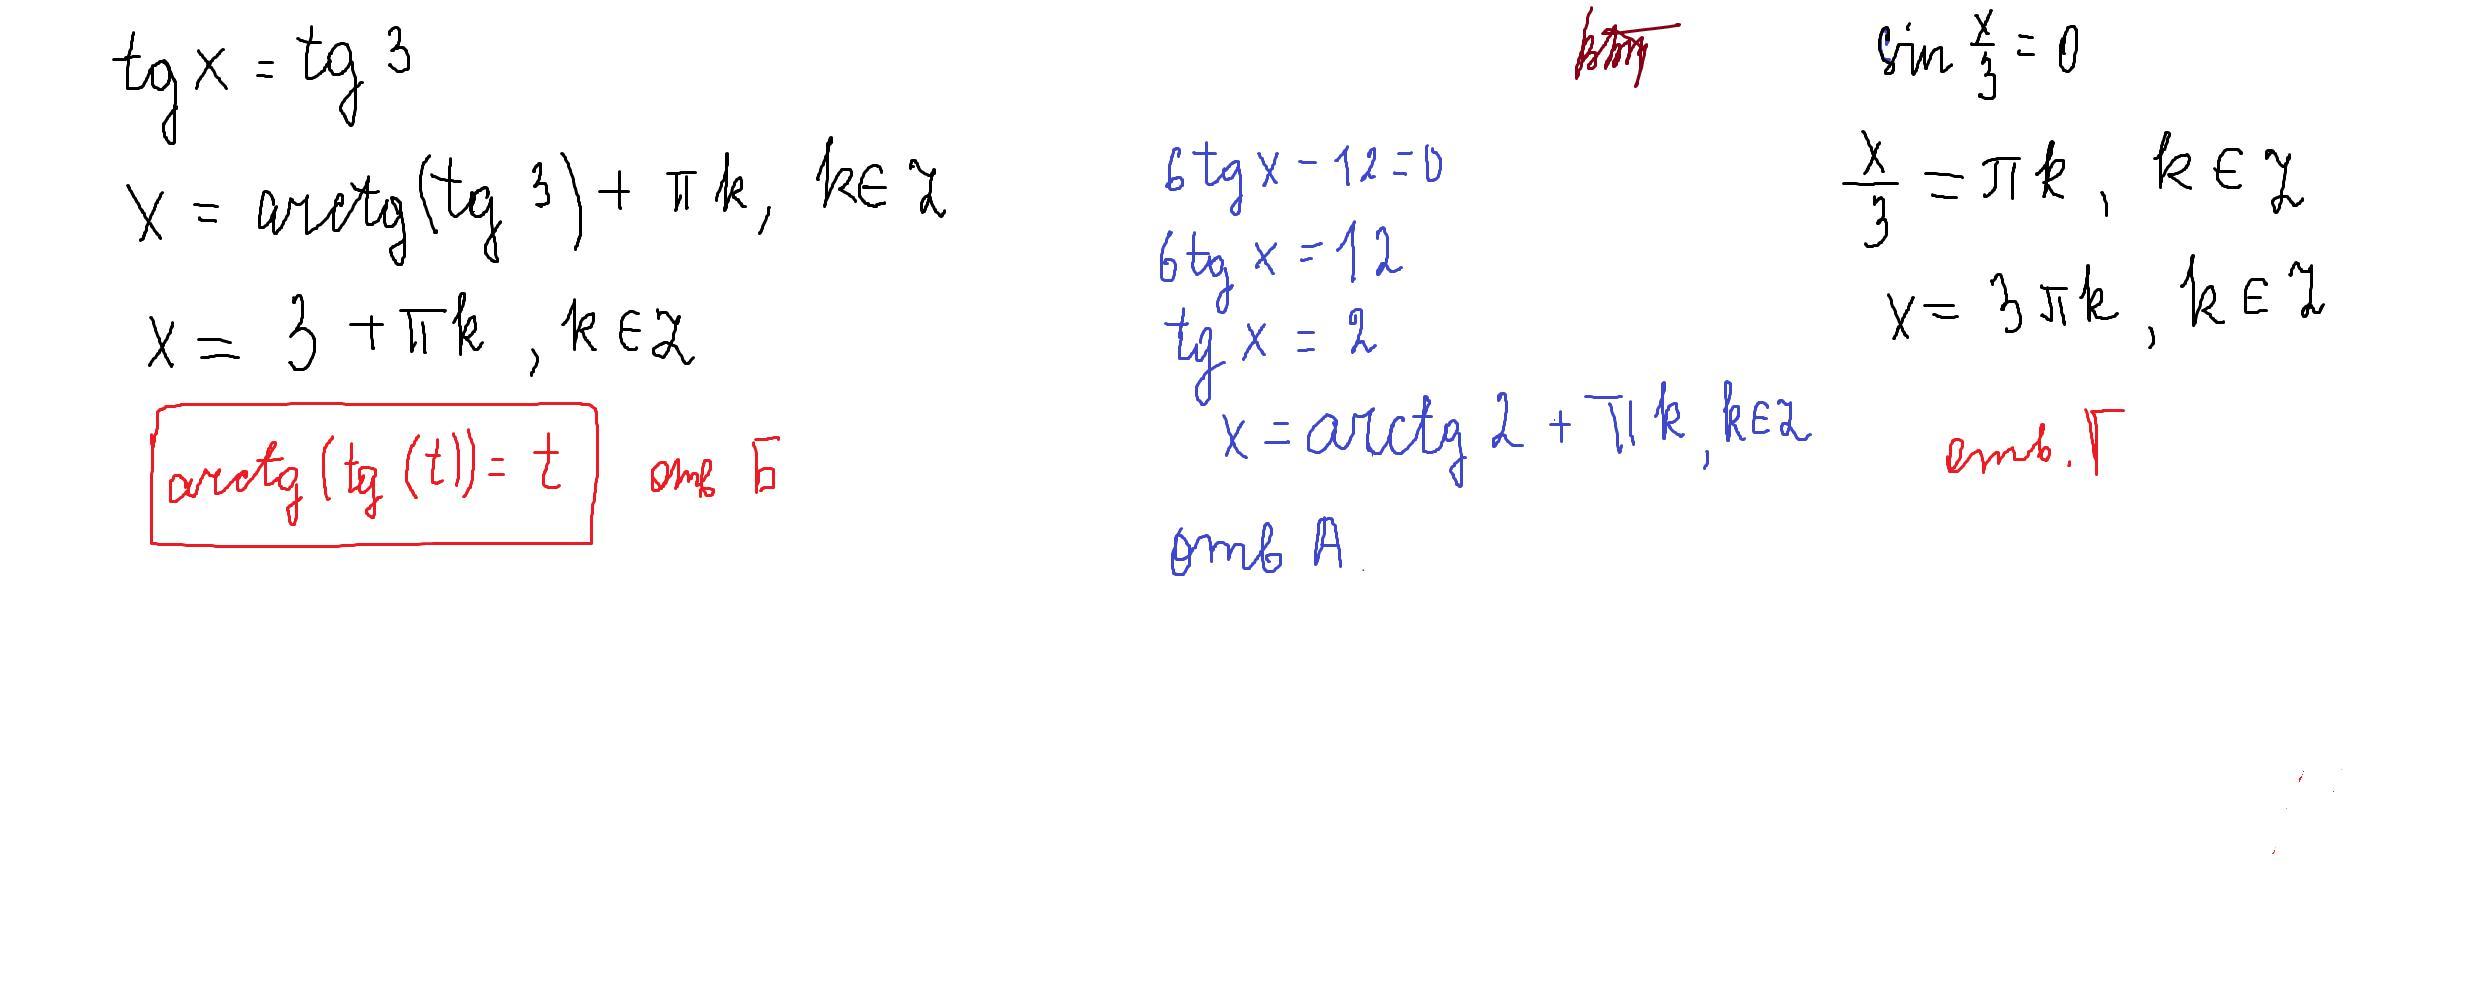 tg x = tg 3
x = arctg(tg 3) + πk, k∈Z
x = 3 + πk, k∈Z
arctg(tg(t)) = t
отв Б
6tg x - 12 = 0
6tg x = 12
tg x = 2
x = arctg 2 + πk, k∈Z
отв А
sin x/3 = 0
x/3 = πk, k∈Z
x = 3πk, k∈Z
отв. Г